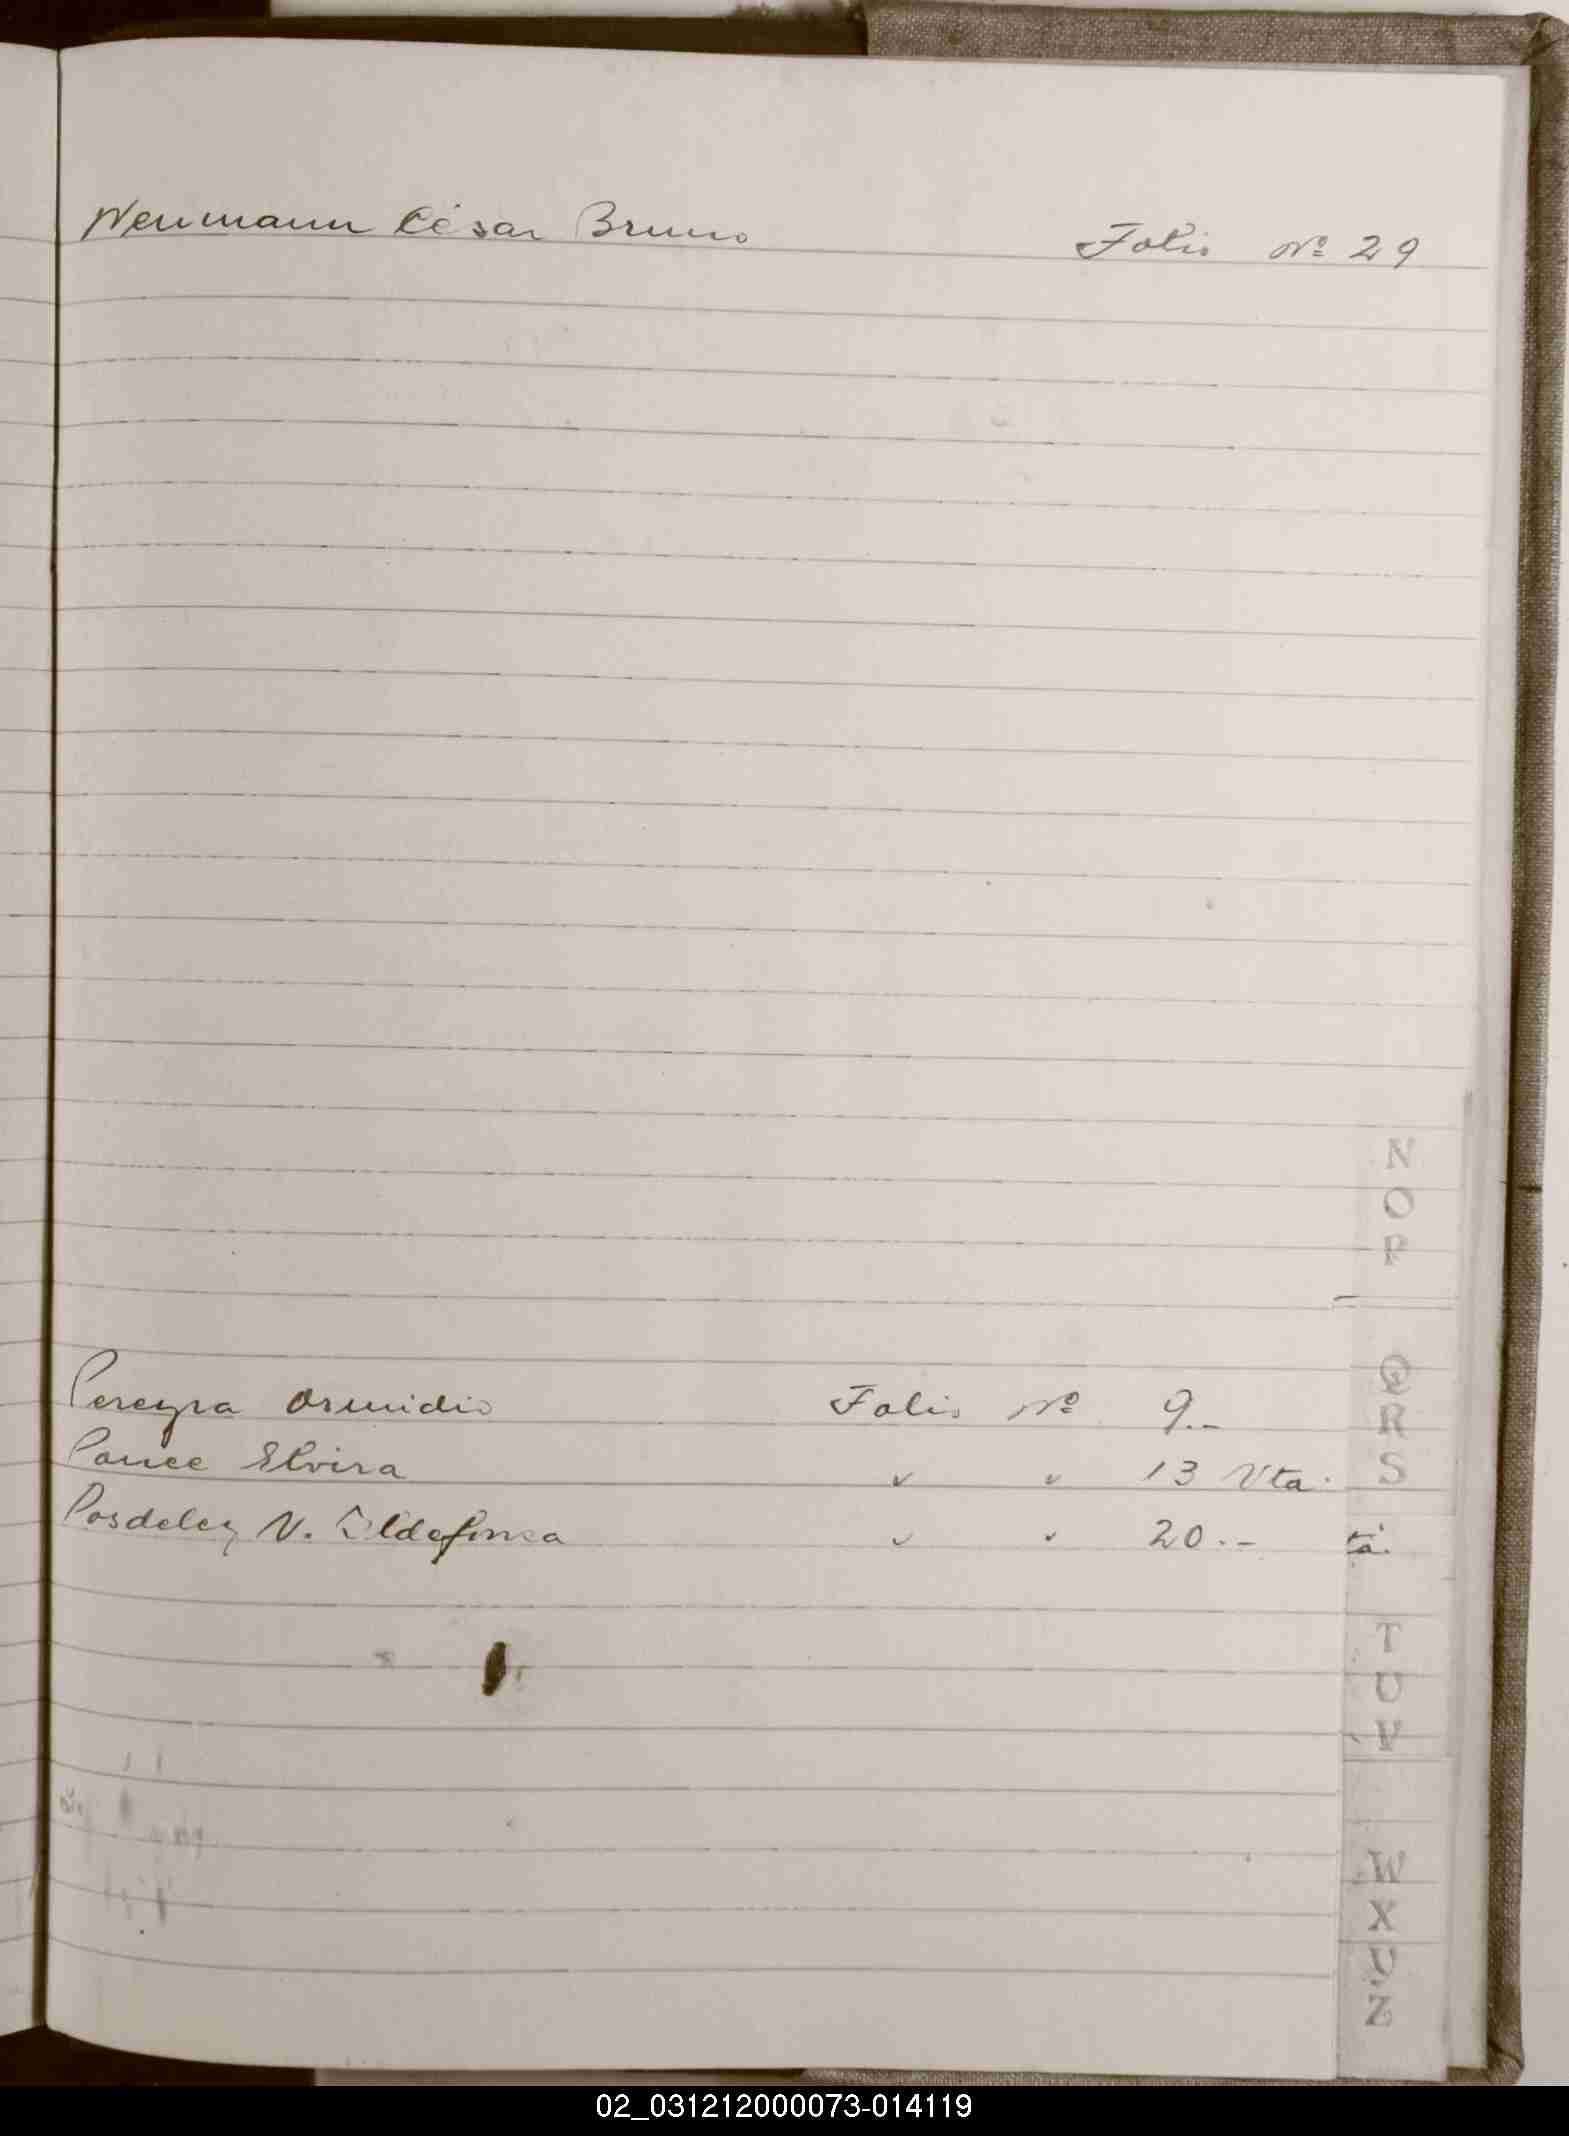 Neumann César Bruno Folio Nº 29
N
O
P
Q
Pereyra Osmidio Folio Nº 9.-
R
Ponce Elvira " " 13 Vta.
S
Posdeley N. Ildefonsa " " 20.- ta.
T
U
V
W
X
Y
Z
02_031212000073-014119